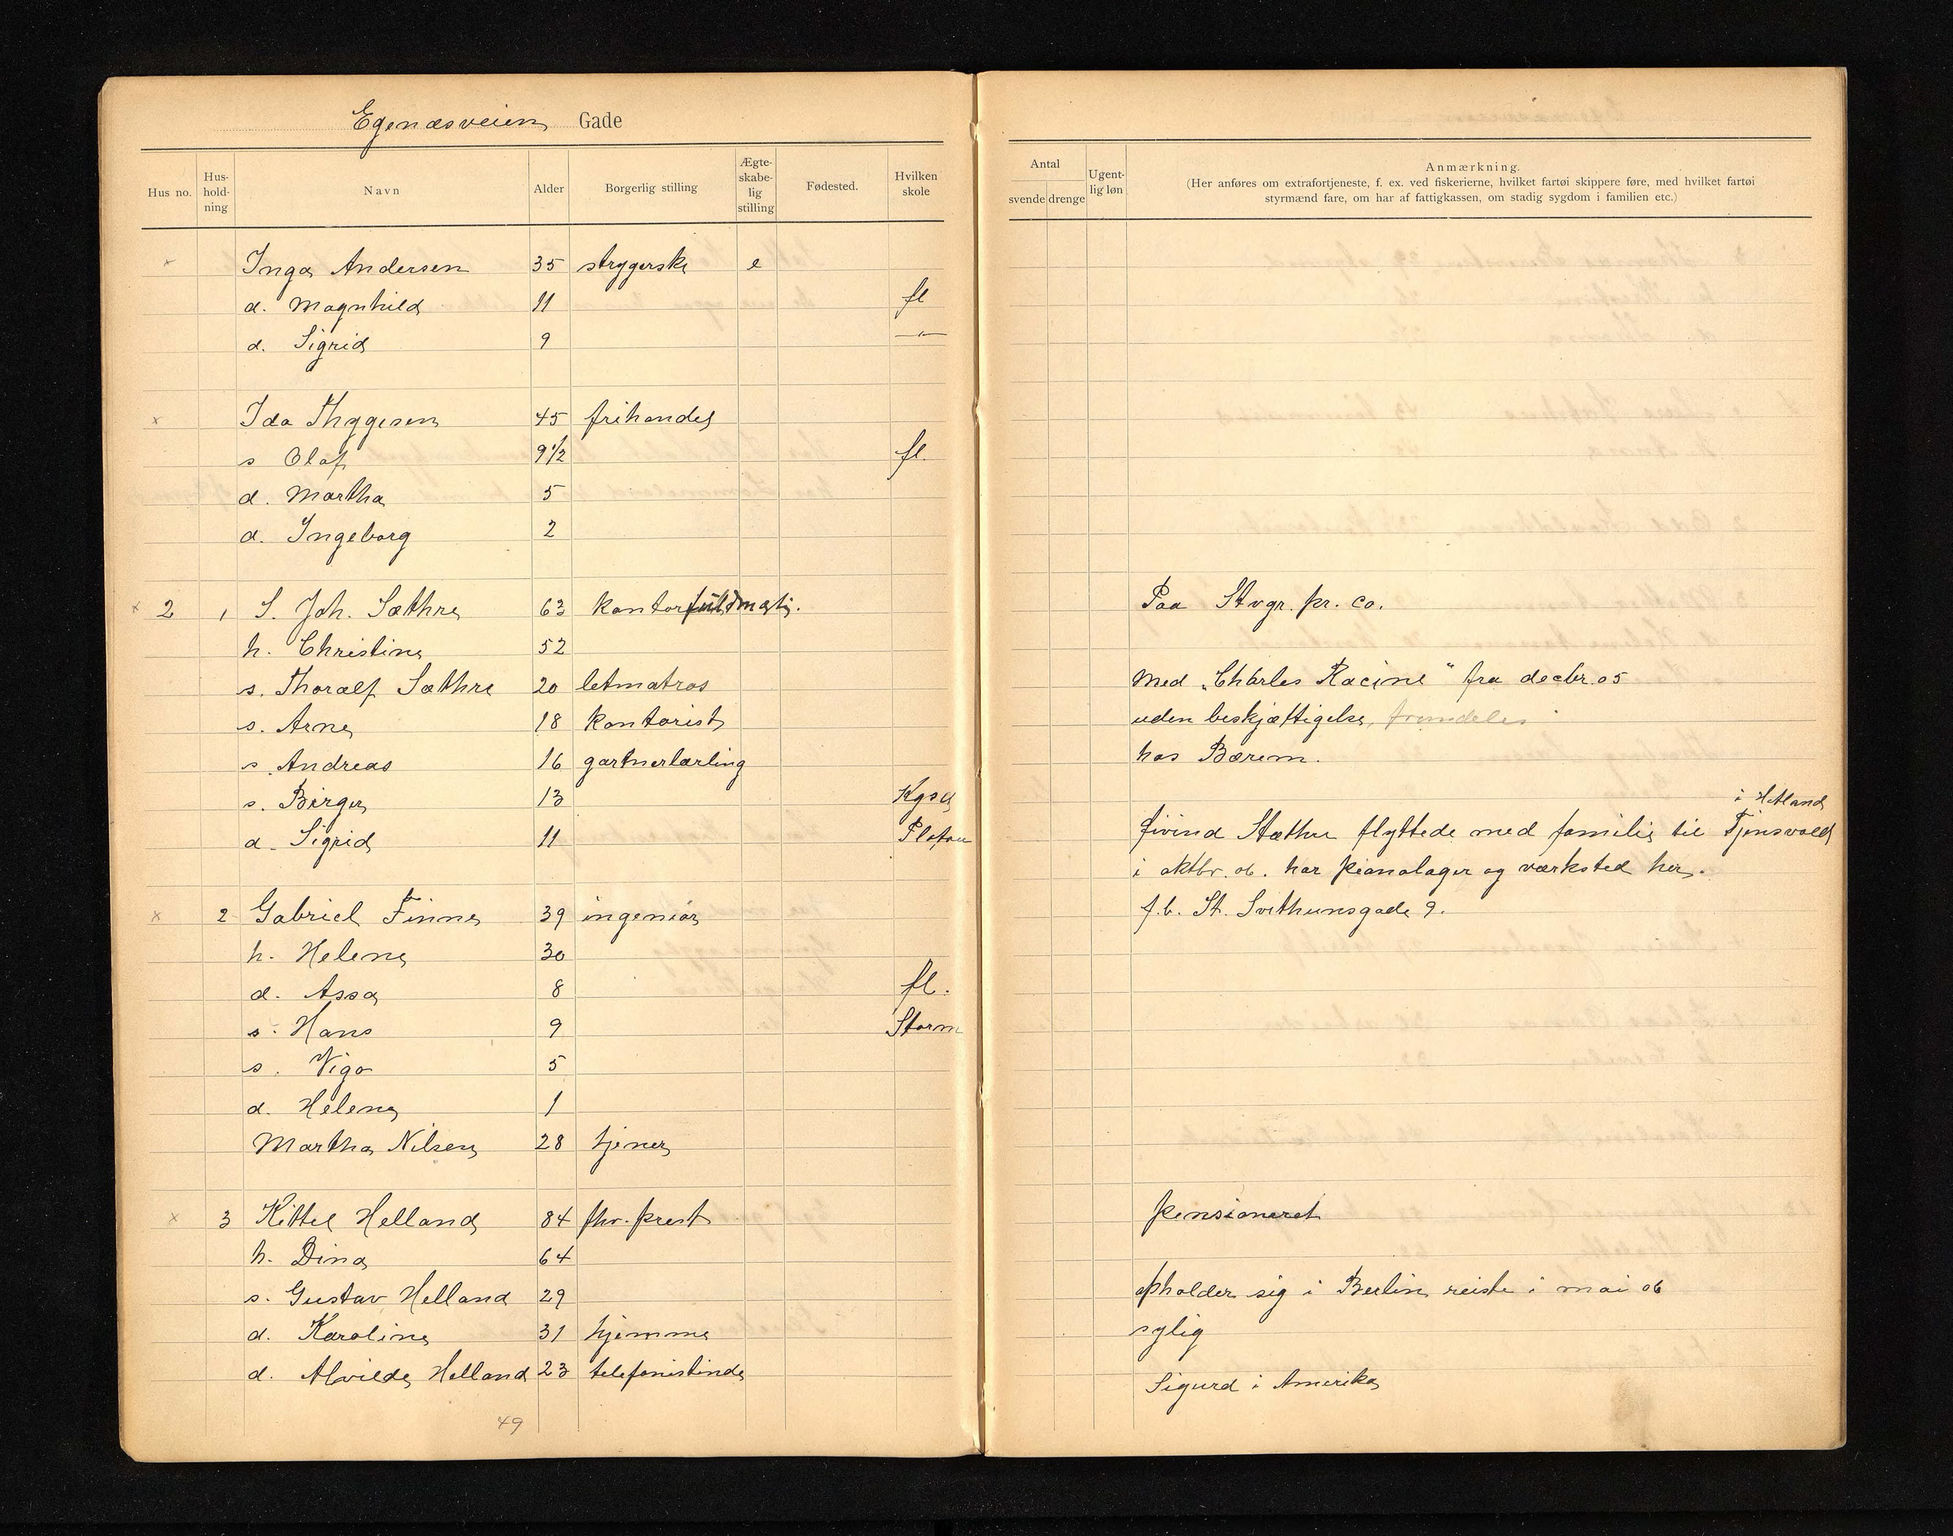 Egenæsveien Gade
Hus no. Hus-hold-ning Navn Alder Borgerlig stilling Ægte-skabe-lig stilling Fødested. Hvilken skole
Antal svende drenge Ugent-lig løn Anmærkning.
(Her anføres om extrafortjeneste, f. ex. ved fiskerierne, hvilket fartøi skippere føre, med hvilket fartøi
styrmænd fare, om har af fattigkassen, om stadig sygdom i familien etc.)
× Inga Andersen 35 strygerske e
d. Magnhild 11 fl
d. Sigrid 9 —"—
× Ida Thygesen 45 frihandel
s Olaf 9 1/2 fl.
d. Martha 5
d. Ingeborg 2
× 2 1 S. Joh. Sæthre 63 kontorfuldmægtig. Paa Stvgr. pr. co.
h. Christine 52
s. Thoralf Sæthre 20 letmatros Med "Charles Racine" fra decbr. 05
s. Arne 18 kontorist uden beskjæftigelse, fremdeles
s. Andreas 16 gartnerlærling hos Bærem.
s. Birger 13 Kgsg
i Hetland
d. Sigrid 11 Øivind Sæthre flyttede med familie til Tjensvold
i oktbr. 06. har pianolager og værksted her.
× 2 Gabriel Finne 39 ingeniør f.b. St. Svithunsgade 9.
h. Helene 30
d. Assa 8 fl.
s. Hans 9 Storm
s. Vigo 5
d. Helene 1
Martha Nilsen 28 tjener
× 3 Kittel Helland 84 fhv. prest pensioneret
h. Dina 64
s. Gustav Helland 29 opholder sig i Berlin reiste i mai 06
d. Karoline 31 hjemme sylig
d. Alvilde Helland 23 telefonistinde Sigurd i Amerika
49